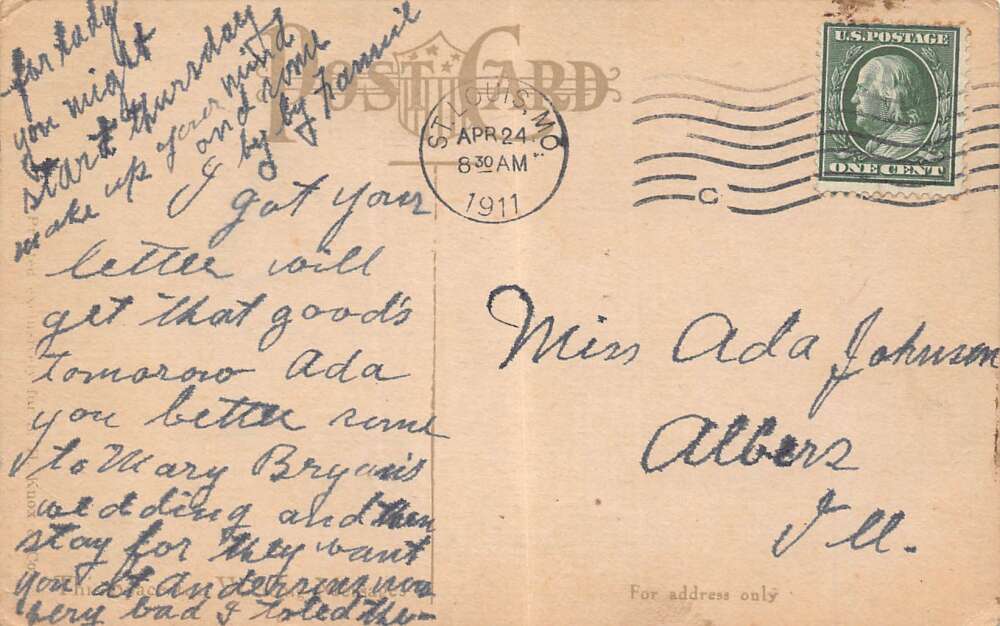 POST CARD
ST. LOUIS, MO.
APR 24
8 30 AM
1911
C
U.S. POSTAGE
ONE CENT
I got your
letter will
get that good's
Tomorow Ada
you better come
to Mary Bryan's
wedding and then
stay for they want
you at
very bad I toled the
for lady
you might
start thursday
make up your mind
and come
by by Fannie
Miss Ada Johnson
Albers
Ill.
For address only